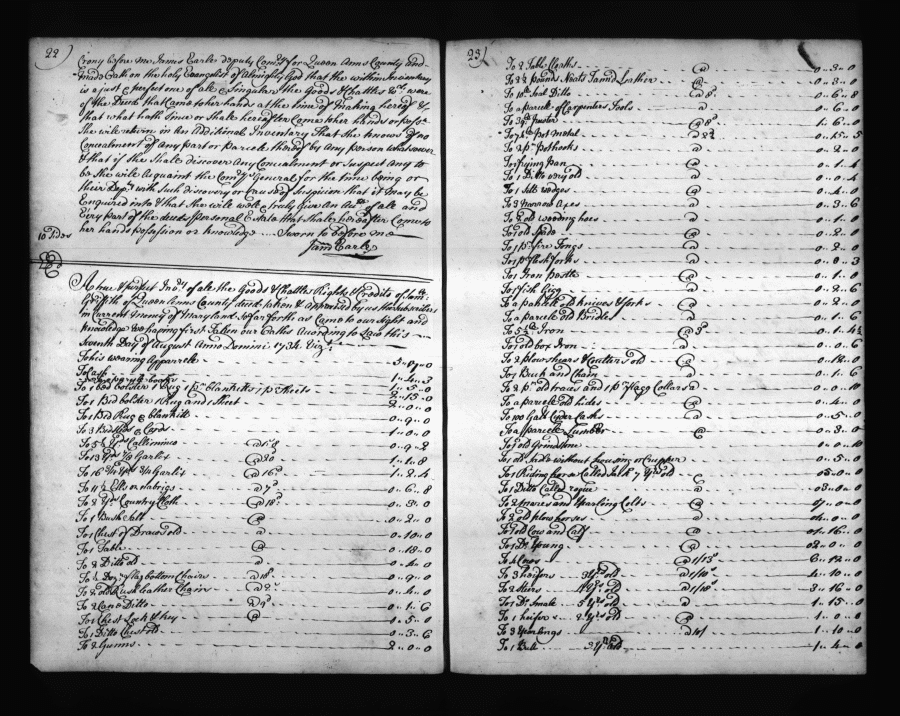 22)
Crony before me James Earle deputy Com.ry for Queen Anns County and
made Oath on the holy Evangelist of Almighty God that the within Inventory
is a just & perfect one of all & Singular the Goods & Chattles &c. were
of the Deced that Came to her hands at the time of making hereof &
that what hath Since or Shall hereafter Come to her hands or poss.n
She will return in an Additional Inventory That She knows of no
Concealment of Any part or parcele thereof by Any person whatsoever
& that if She Shall discover Any Concealment or Suspect Any to
be She will Acquaint the Com.ry General for the time being or
their Dep.ty with Such discovery or Cause of Suspicion that it may be
Enquired into & that She will well & truly give An Acc.t of all and
Every part of the deceds personal Estate that Shall hereafter Come to
her hands possession or knowledge ... Sworn to before me
10 Sides
Jam Earle
A true & perfect Inv.ry of all the Goods & Chattles Rights & Credits of
Griffith of Queen Anns County deced taken & Appraised by us the Subscribers
in Current money of Maryland So far forth as Came to our Sight and
knowledge We haping first Taken our Oaths According to Law this
Seventh Day of August Anno Domini 1734 Viz.t
To his wearing Apparrele 5..17..0
To Cash
To 1 bed bolster 1 Rug 1 p.r blanketts 1 p.r Sheets
To 1 Bed bolster 1 Rug and 1 Sheet 2..0..0
To 1 Bed Rug & blankitt 0..9..0
To 3 Bedsteds & Cords 1..0..0
To 5½ y.ds Callimineo 0..9..2
To 13 y.ds 7/8 Garlix @ 20 1..1..8
To 16 ¾ y.ds 3/4 Garlix @ 16d 1..2..4
To 11½ Ells ozzabrigs @ 7d 0..6..8
To 2 y.ds Country Cloth @ 18d 0..3..0
To 1 Bush. Salt @ 0..2..0
To 1 Chest of Draws old @ 0..10..0
To 1 Table @ 0..18..0
To 2 Ditto old @ 0..4..0
To ½ Doz.n flag bottom Chairs @ 18d 0..9..0
To 2 old Rush Leather Chairs @ 2
To 2 Cane Ditto @ 9d 0..1..6
To 1 Chest Lock & key @ 1..5..0
To 1 Ditto Chest old 0..3..6
To 2 Gunns 2..0..0
23)
To 2 Table Cloaths @ 0..3..0
To 2½ pounds Neats Tannd Leather @ 0..3..0
To 10 lb Seal Ditto @ 8d 0..6..8
To a parcele of Carpenters Tools @ 0..6..0
To 39 lb Pewter @ 8d 1..6..0
To lb Pot Metal @ 2½ 0..15..5
To 2 p.r Pothooks @ 0..2..0
To 1 frying pan @ 0..1..4
To 1 Ditto very old @ 0..0..4
To 1 Sett wedges @ 0..4..0
To 3 Narrow Axes @ 0..3..6
To 2 old weeding hoes @ 0..1..0
To 1 old Spade @ 0..2..0
To 1 p.r fire Tongs @ 0..2..0
To 1 p.r flesh forks @ 0..0..3
To 1 Iron pestle @ 0..1..0
To 1 fish Gigg @ 0..2..6
To a parcele old knives & forks @ 0..2..0
To a parcele old Bridles @ 0..1..6
To 5½ lb Iron @ 3d 0..1..4½
To 1 old box Iron @ 0..0..6
To 2 plow shears & Coulters old @ 0..12..0
To 1 Buck and Chain @ 0..1..6
To 2 p.r old traces and 1 p.r flagg Collars @ 0..0..10
To a parcele old hides @ 0..4..0
To 100 Gall. Cyder Casks @ 0..5..0
To a parcele Lumber @ 0..3..0
To 1 old Grindstone 0..0..10
To 1 old Sadle without housing or Crupper 0..5..0
To 1 Riding horse Called Jack 7 y.rs old
To 1 Ditto Called rogue @ 03..0..0
To 2 mares and Yearling Colts @ 07..0..0
To 2 old plow horses @ 04..0..0
To 1 old Cow and Calf @ 01..16..0
To 1 D.o Young @ 02..0..0
To 4 Cows @ 1/13s 6..12..0
To 3 heifers 3 y.rs old @ 1/10s 4..10..0
To 2 Steers 4 y.rs old @ 1/18s 3..16..0
To 1 D.o Smale 5 y.rs old @ 1..15..0
To 1 heifer 2 y.rs old @ 1..0..0
To 3 Yearlings @ 10/ 1..10..0
To 1 Bull 3 y.rs old 1..4..0